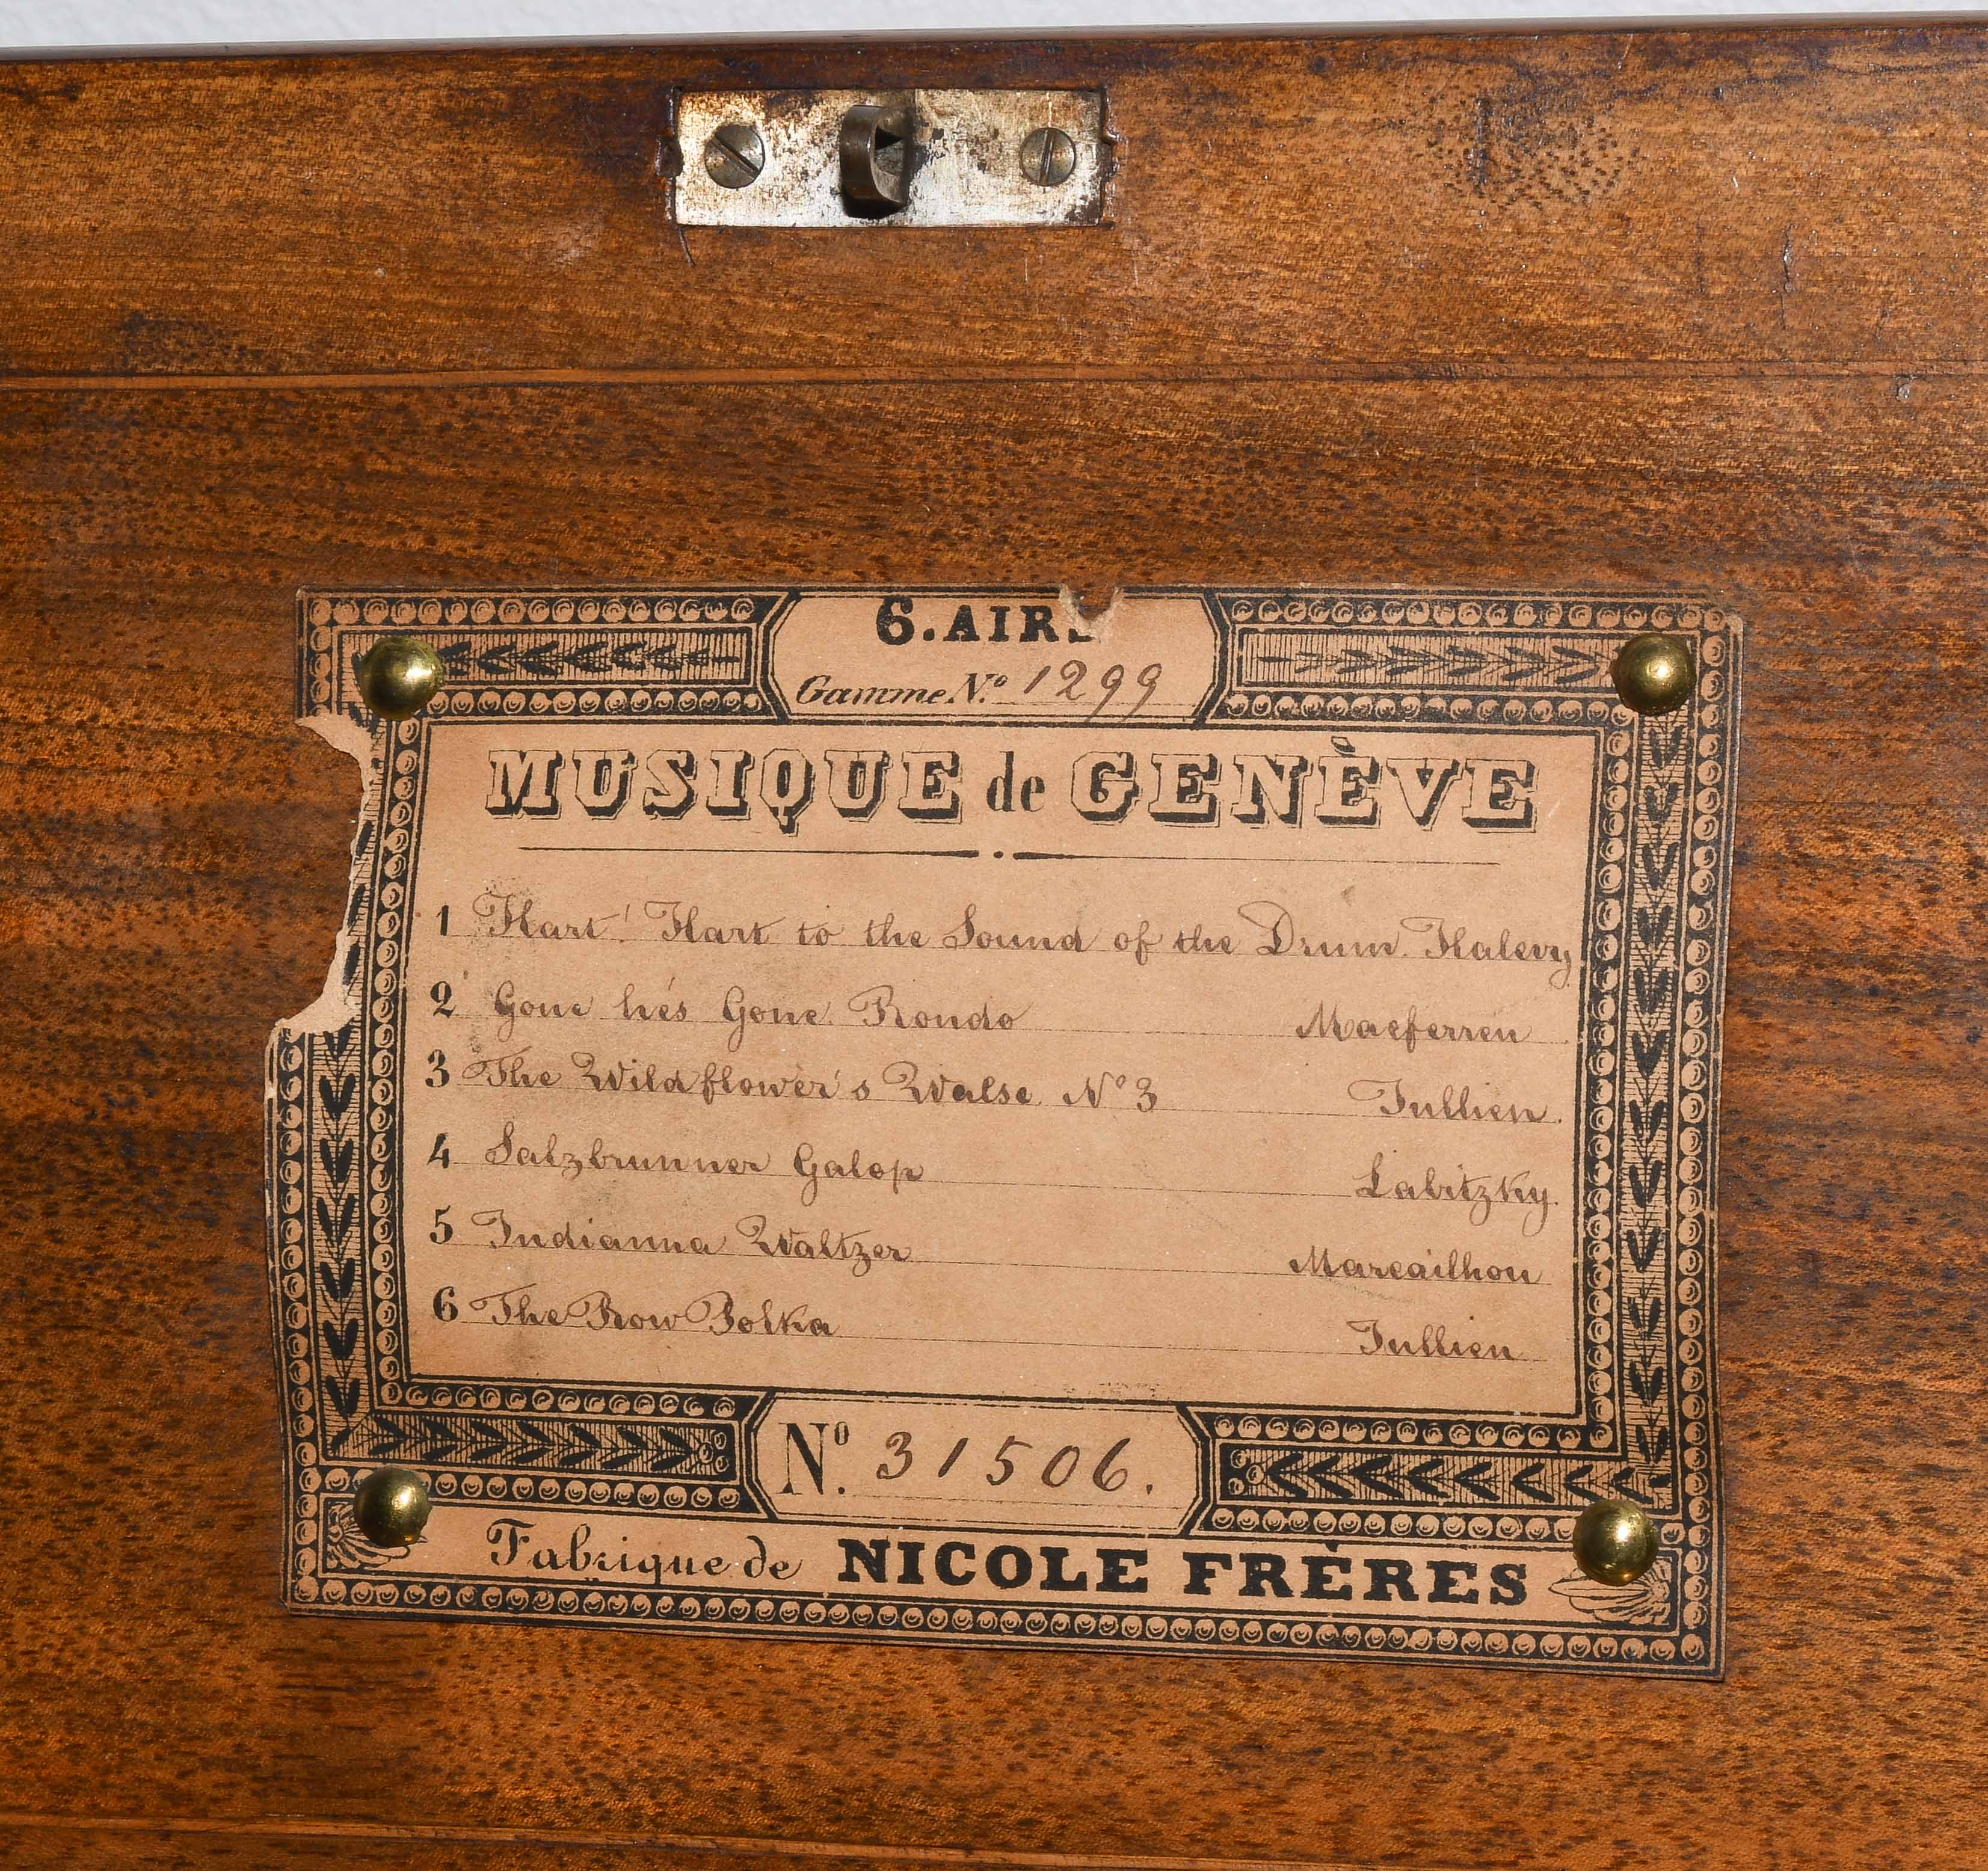 6. AIRS
Gamme N.º 1299
MUSIQUE de GENÈVE
1 Hark! Hark to the Sound of the Drum. Halevy
2 Gone he's Gone. Rondo Macferren
3 The Wildflower's Walse Nº 3 Jullien.
4 Salzbrunner Galop Labitzky.
5 Indianna Waltzer Marcailhou
6 The Row Polka Jullien
Nº. 31506.
Fabrique de NICOLE FRÈRES